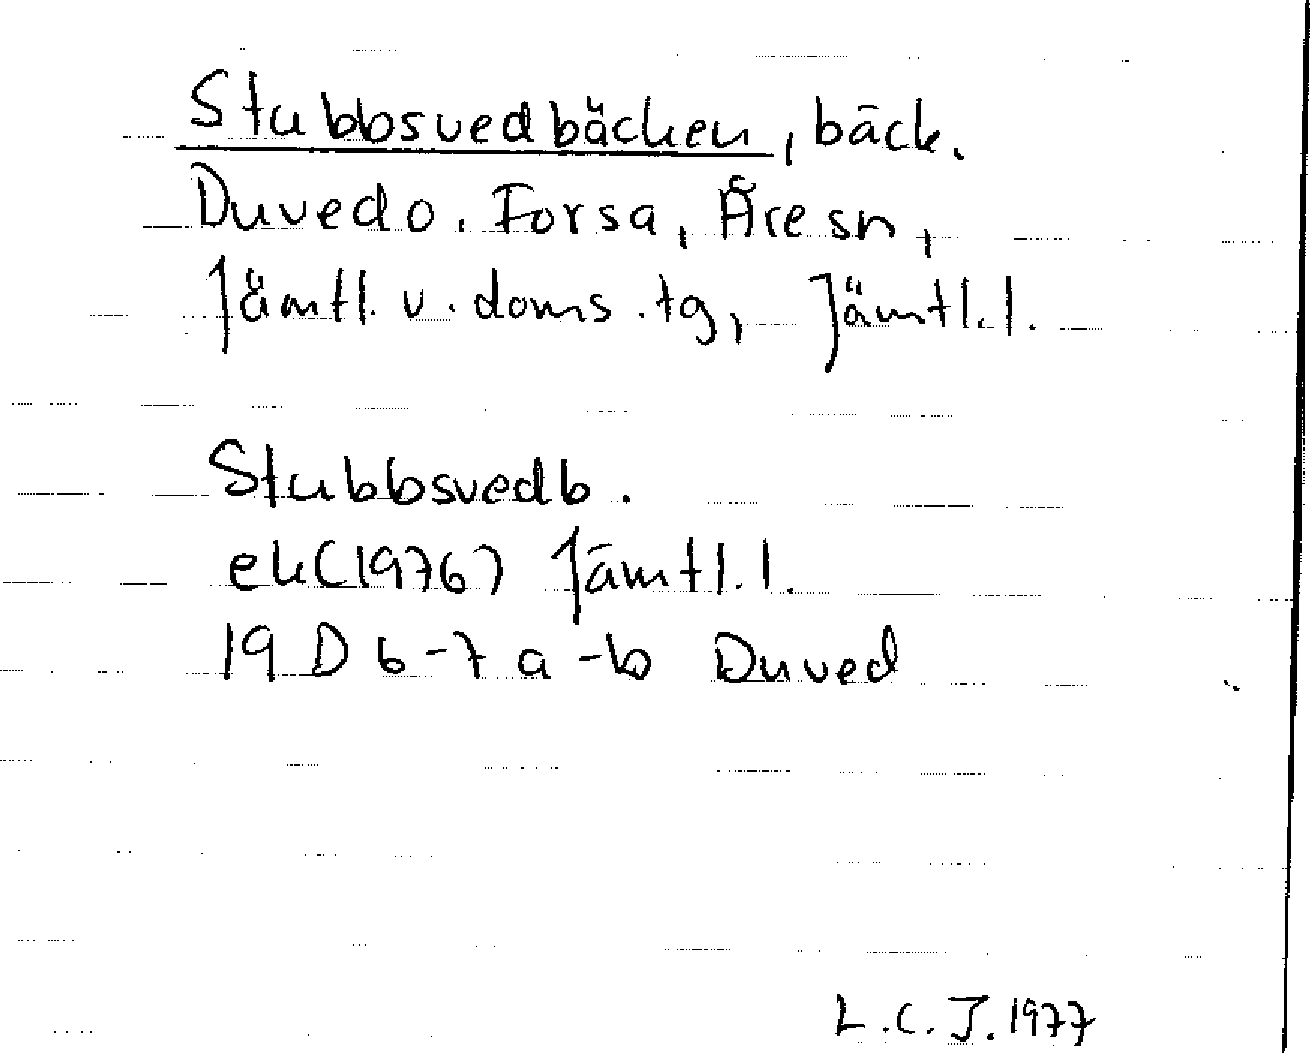 Stubbsvedbäcken, bäck.
Duved o. Forsa, Åre sn,
Jämtl. v. doms. tg, Jämtl. l.
Stubbsvedb.
ek (1976) Jämtl. l.
19 D 6-7 a-b Duved
L.C.J. 1977